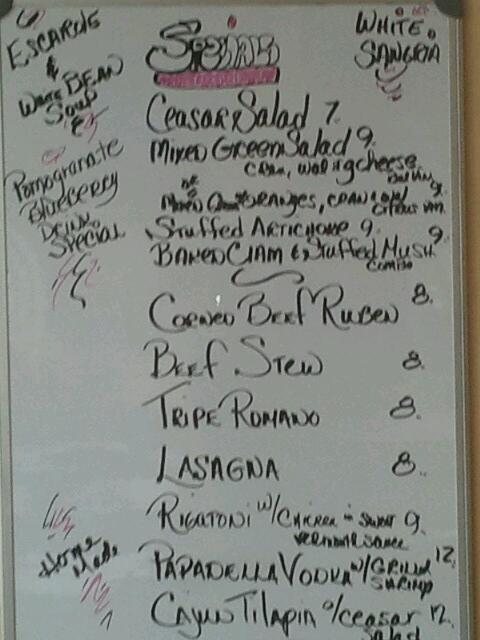 ESCAROLE
&
WHITE BEAN
SOUP
Pomogranate
Blueberry
DRINK
SPECIAL
Specials
WHITE
SANGRIA
CEASAR SALAD 7.
MIXED GREEN SALAD 9.
CRAN, WAL + g CHEESE
BALVING.
OR
MIXED ORANGES, CRAN
CITRUS VIN.
STUFFED ARTICHOKE 9.
BAKED CLAM & STUFFED MUSH 9.
COMBO
CORNED BEEF RUBEN 8.
BEEF STEW 8.
TRIPE ROMANO 8.
LASAGNA 8.
RIGATONI W/CHICKEN IN SWEET 9.
VERMOUTH SAUCE
Home
Made
PAPADELLA VODKA W/GRILLED 12.
SHRIMP
CAJUN TILAPIA o/CEASAR 12.
SALAD